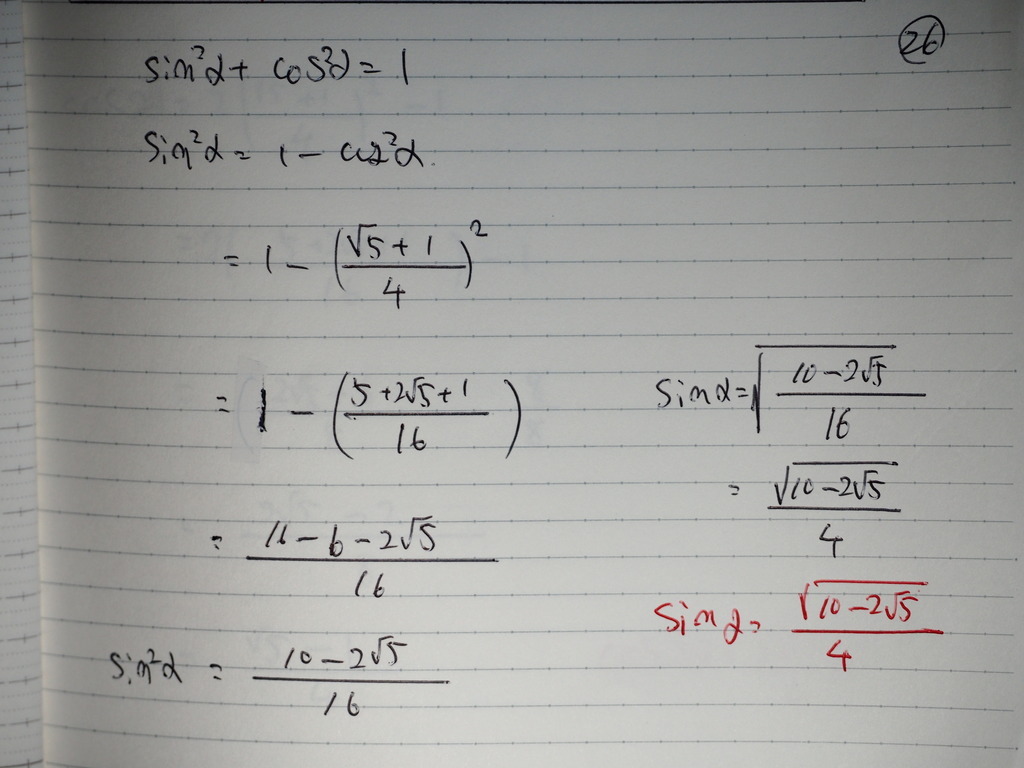 26
sin²α + cos²α = 1
sin²α = 1 - cos²α.
= 1 - ((√5 + 1)/4)²
= 1 - ((5 + 2√5 + 1)/16)
= (16 - 6 - 2√5)/16
sin²α = (10 - 2√5)/16
sinα = √((10 - 2√5)/16)
= √(10 - 2√5)/4
sinα = √(10 - 2√5)/4